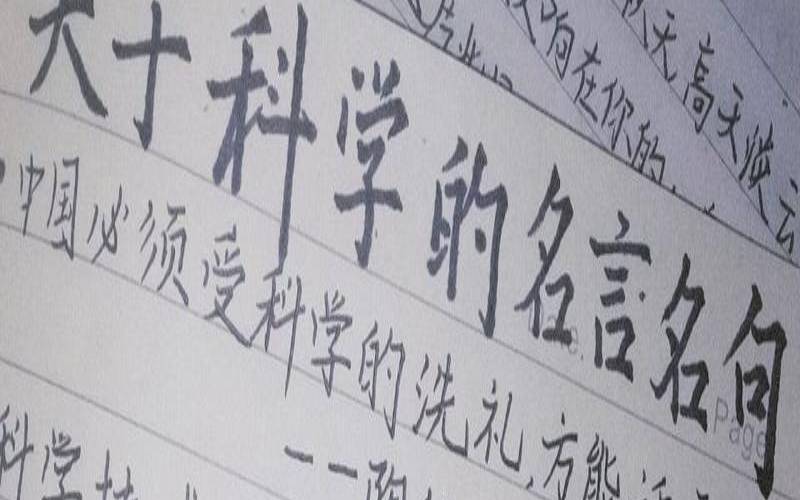 关于科学的名言名句
中国必须受科学的洗礼,方能
科学技
在你的
天,高天淡云
Page